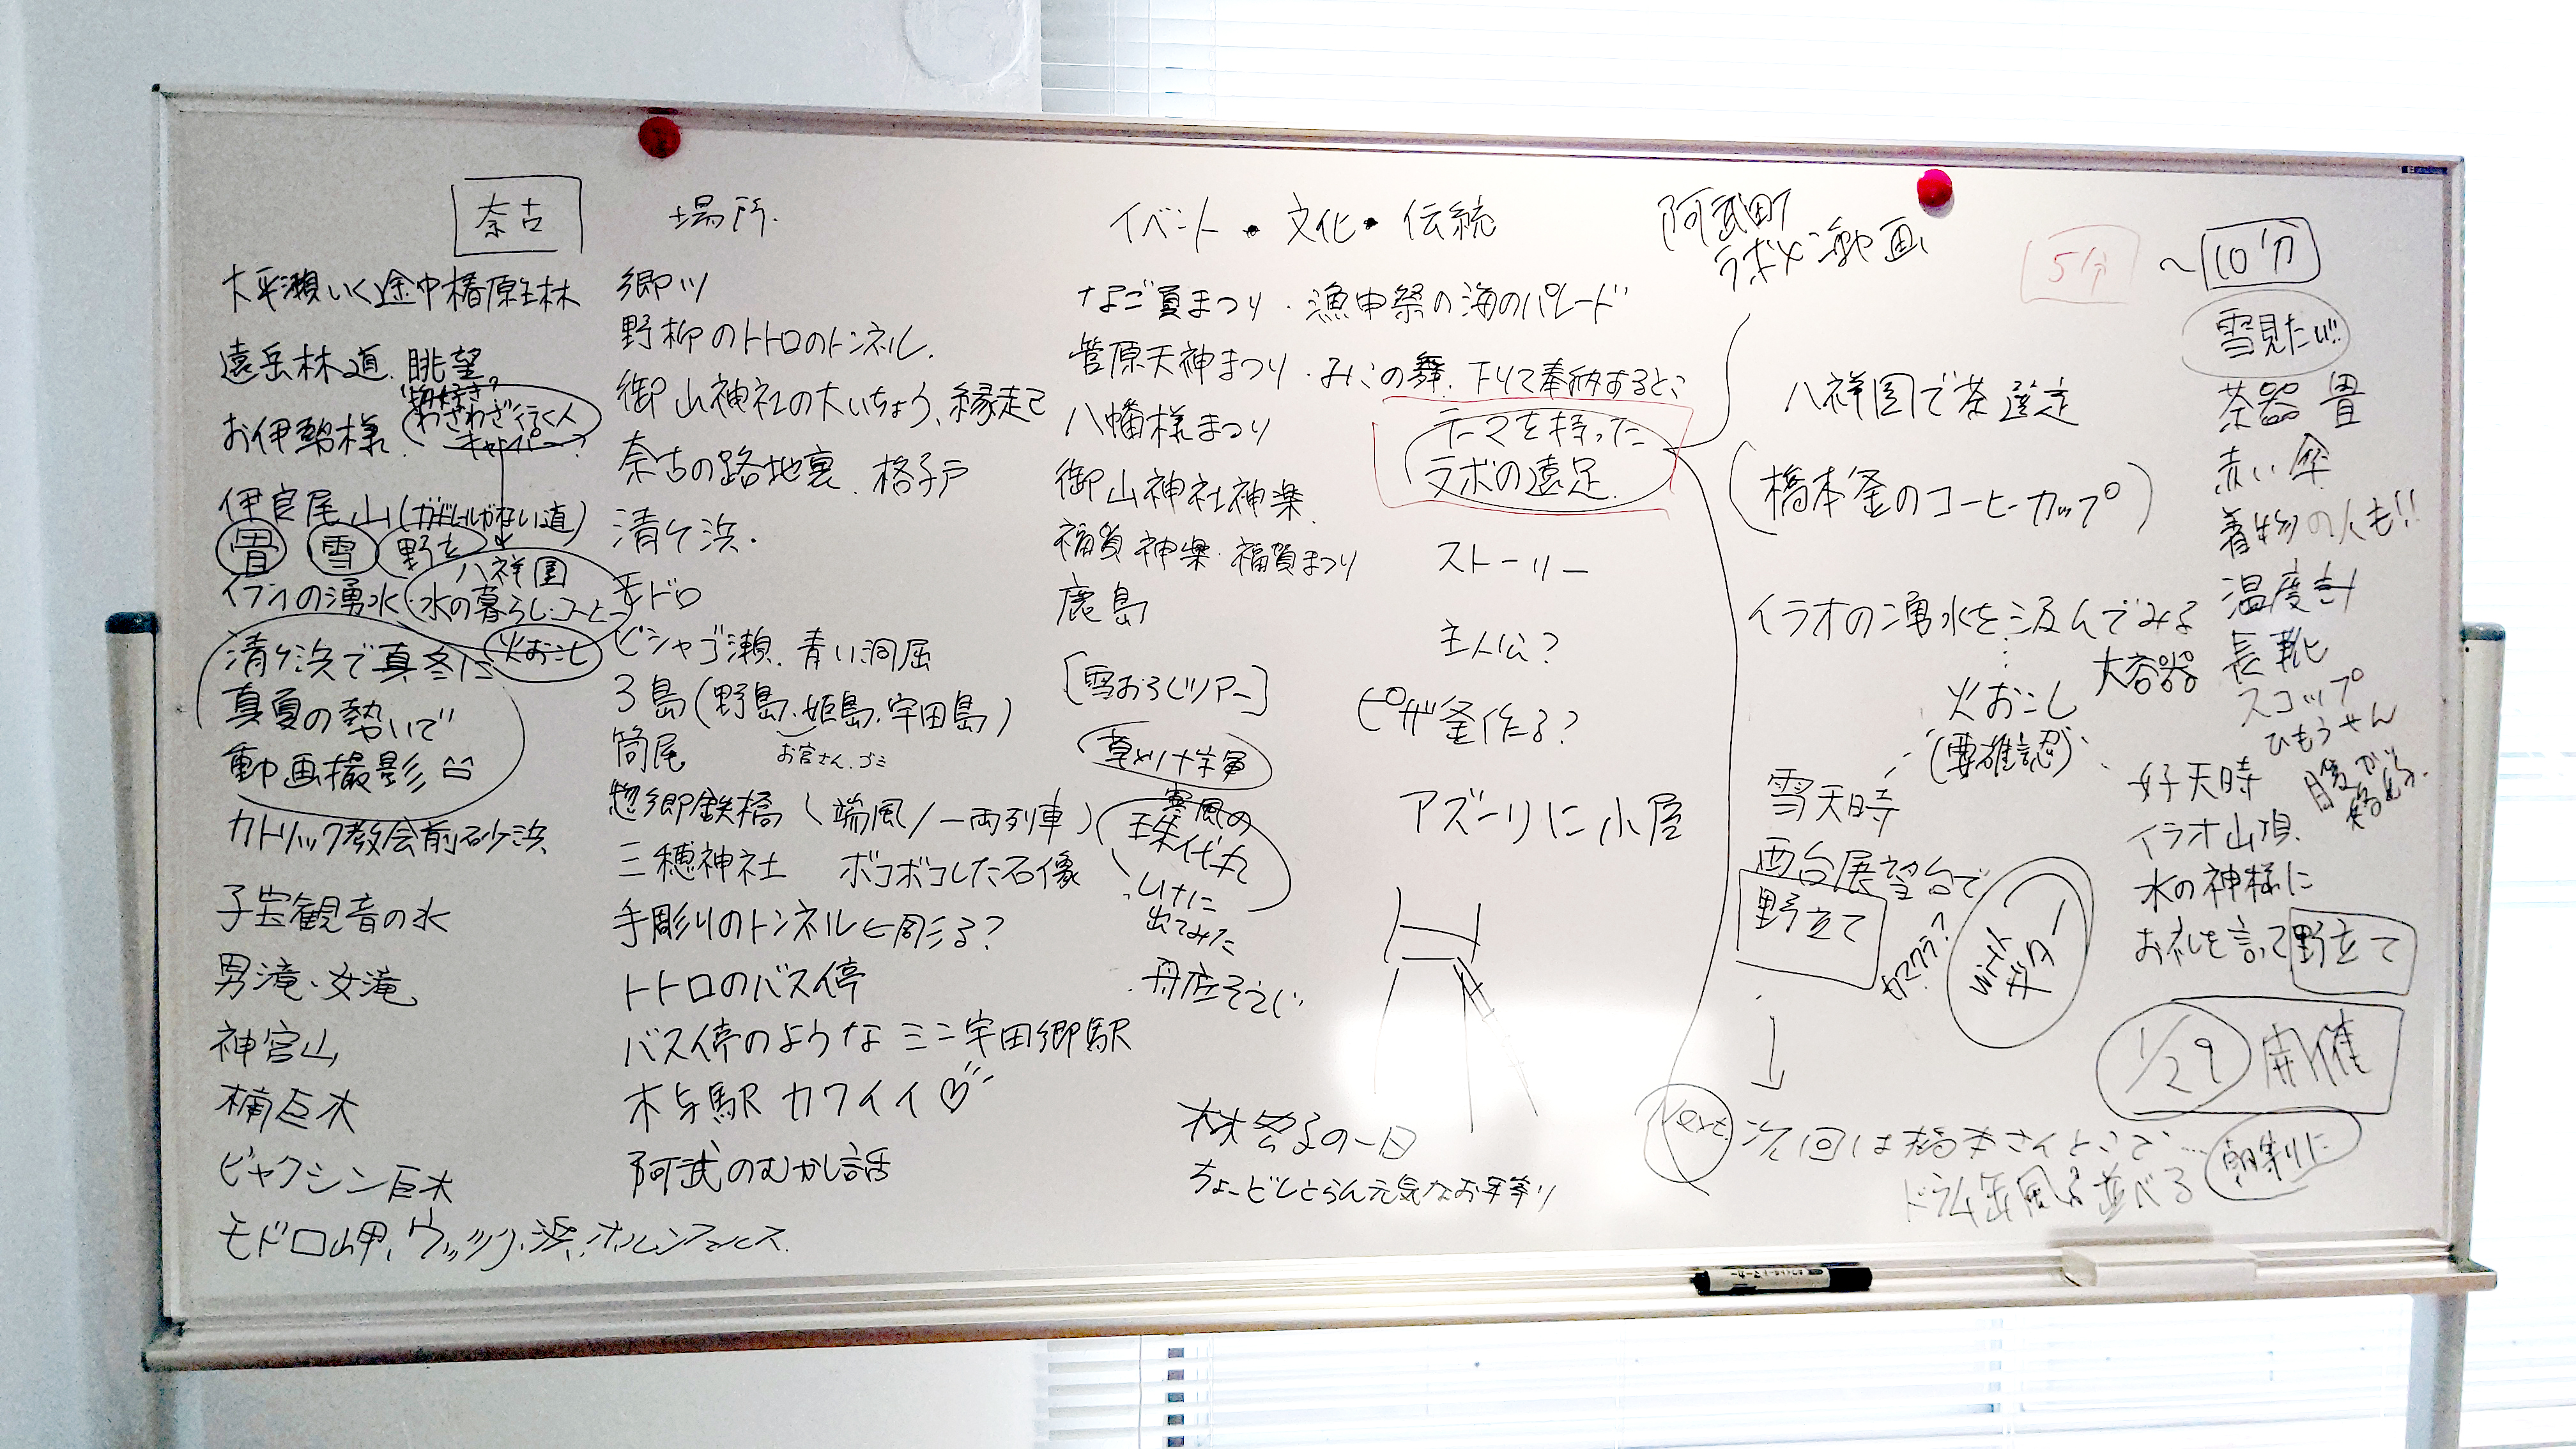 奈古
大平瀬いく途中椿原生林
遠岳林道.眺望
物好き?
わざわざ行く人
お伊勢様.
キャンパー?
伊良尾山(ガードレールがない道)
畳 雪 野立
八祥園
イラオの湧水・水の暮らし・コーヒー
火おこし
清ヶ浜で真冬に
真夏の勢いで
動画撮影
カトリック教会前砂浜
子宝観音の水
男滝・女滝
神宮山
楠巨木
ビャクシン巨木
モドロ岬、ウッツク浜、ホルンフェルス.
場所.
郷川
野柳のトトロのトンネル.
御山神社の大いちょう、縁起
奈古の路地裏.格子戸
清ヶ浜.
モドロ
ビシャゴ瀬.青い洞屈
3島(野島、姫島、宇田島)
お宮さん.ゴミ
筒尾
惣郷鉄橋(端風/一両列車)
三穂神社 ボコボコした石像
手彫りのトンネル←彫る?
トトロのバス停
バス停のような ミニ宇田郷駅
木与駅 カワイイ♡
阿武のむかし話
イベント・文化・伝統
なご夏まつり・漁申祭の海のパレード
菅原天神まつり・みこの舞.下りて奉納するとこ
八幡様まつり
御山神社神楽
福賀神楽・福賀まつり
鹿島
[雪おろしツアー]
草とり十字軍
寒風の
しけに
出てみた
舟底そうじ
テーマを持った
ラボの遠足.
ストーリー
主人公?
ピザ釜作る?
アズーリに小屋
の一日
ちょーどしとらん元気なお年寄り
阿武町
ラボメン動画
5分 ~ 10分
八祥園で茶選定
(橋本釜のコーヒーカップ)
イラオの湧水を汲んでみる
大容器
火おこし
(要確認)
雪天時
西台展望台で
野立て
カマクラ?
with
ギター
Next 次回は橋本さんとこで…
ドラム缶風呂並べる
朝割に
雪見たい!!
茶器 畳
赤い傘
着物の人も!!
温度計
長靴
スコップ
ひもうせん
好天時
イラオ山頂.
水の神様に
お礼を言って野立て
1/29 開催